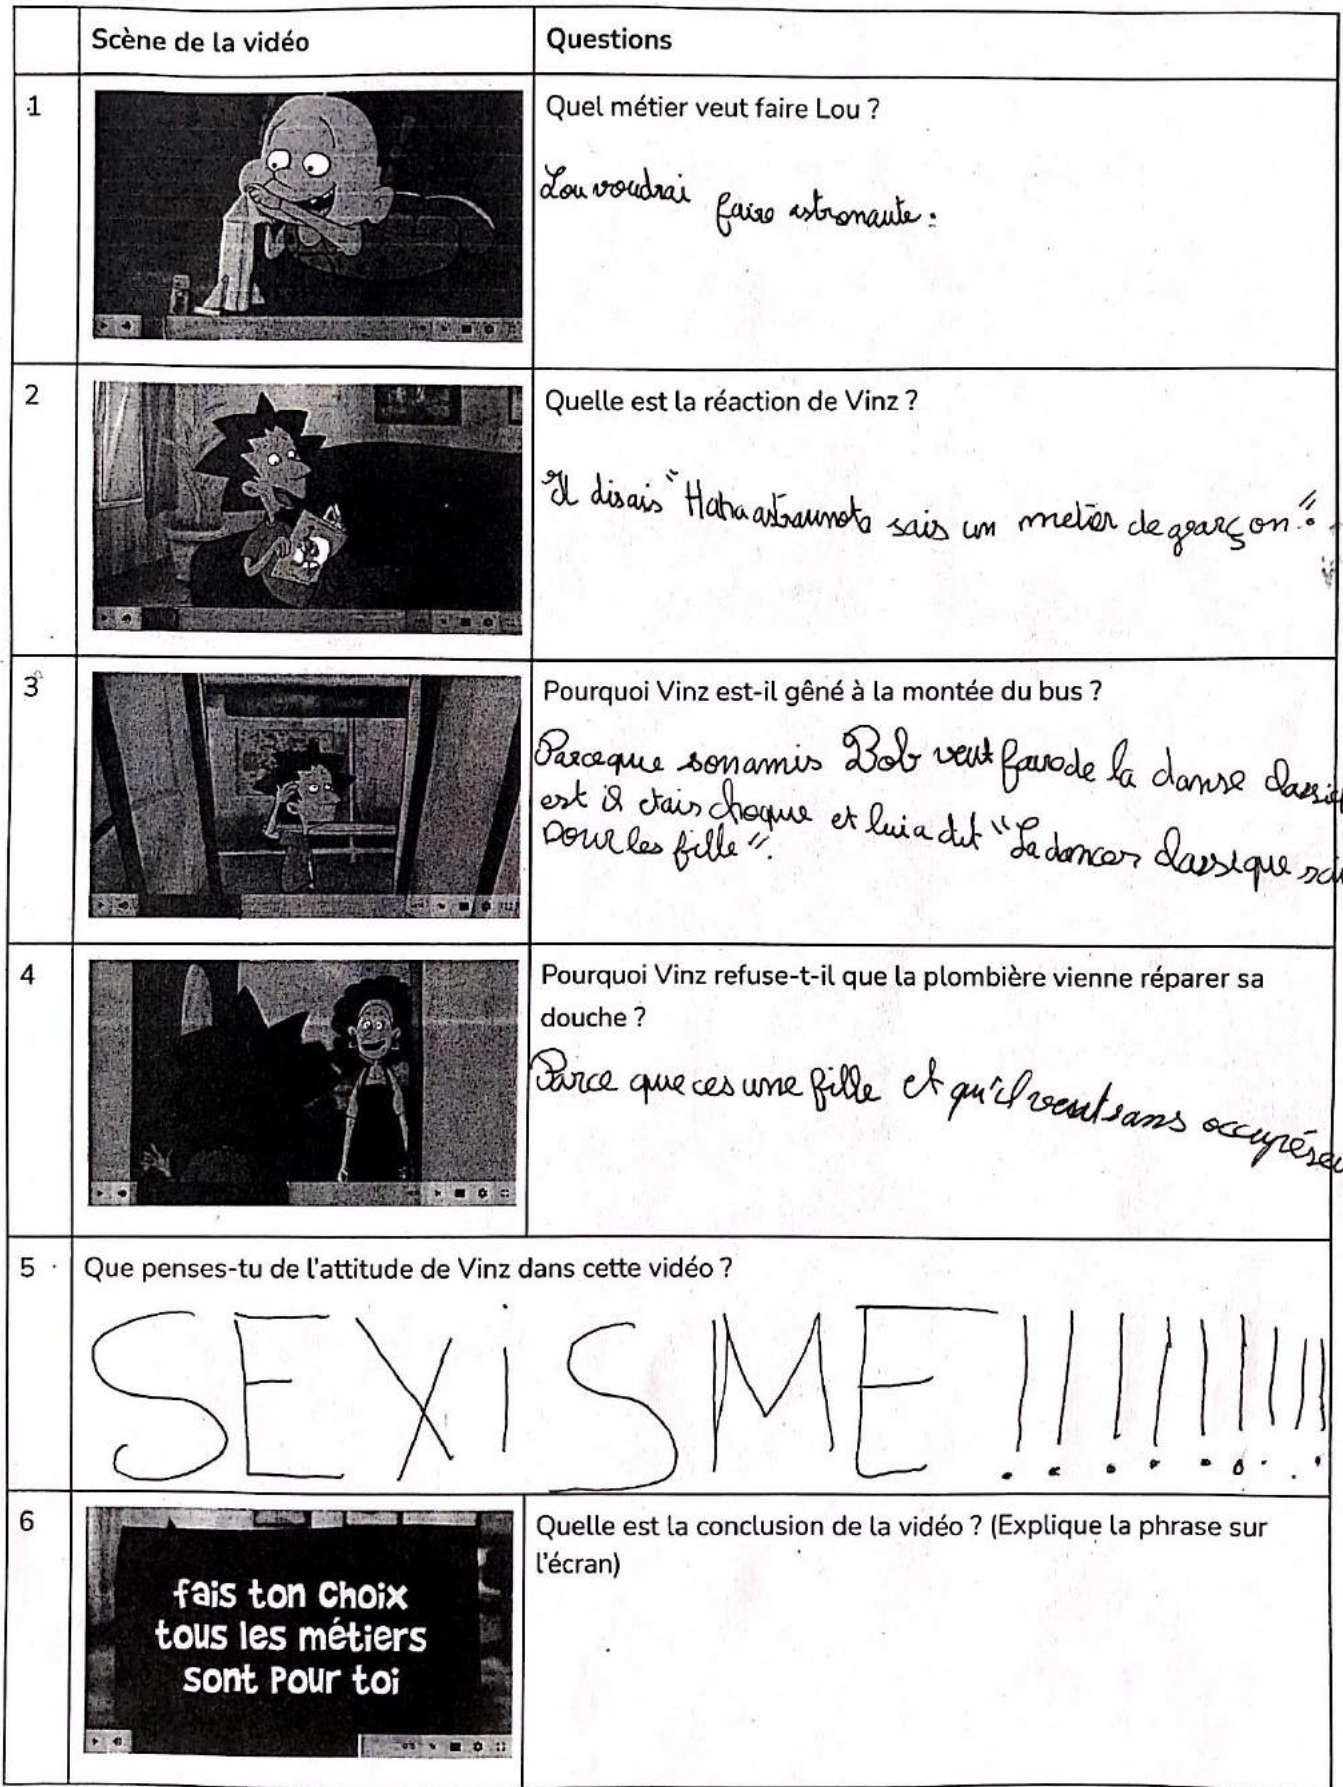 Scène de la vidéo
Questions
1
Quel métier veut faire Lou ?
Lou voudrai faire astronaute.
2
Quelle est la réaction de Vinz ?
Il disais "Haha astraunote sais un metier de garçon".
3
Pourquoi Vinz est-il gêné à la montée du bus ?
Parceque son amis Bob veut faire de la danse
est il étais choque et lui a dit "La dancer classique
pour les fille".
4
Pourquoi Vinz refuse-t-il que la plombière vienne réparer sa
douche ?
Parce que ces une fille et qu'il veut sans
5
Que penses-tu de l'attitude de Vinz dans cette vidéo ?
SEXiSME !!!!!!!!!
6
fais ton Choix
tous les métiers
sont Pour toi
Quelle est la conclusion de la vidéo ? (Explique la phrase sur
l'écran)